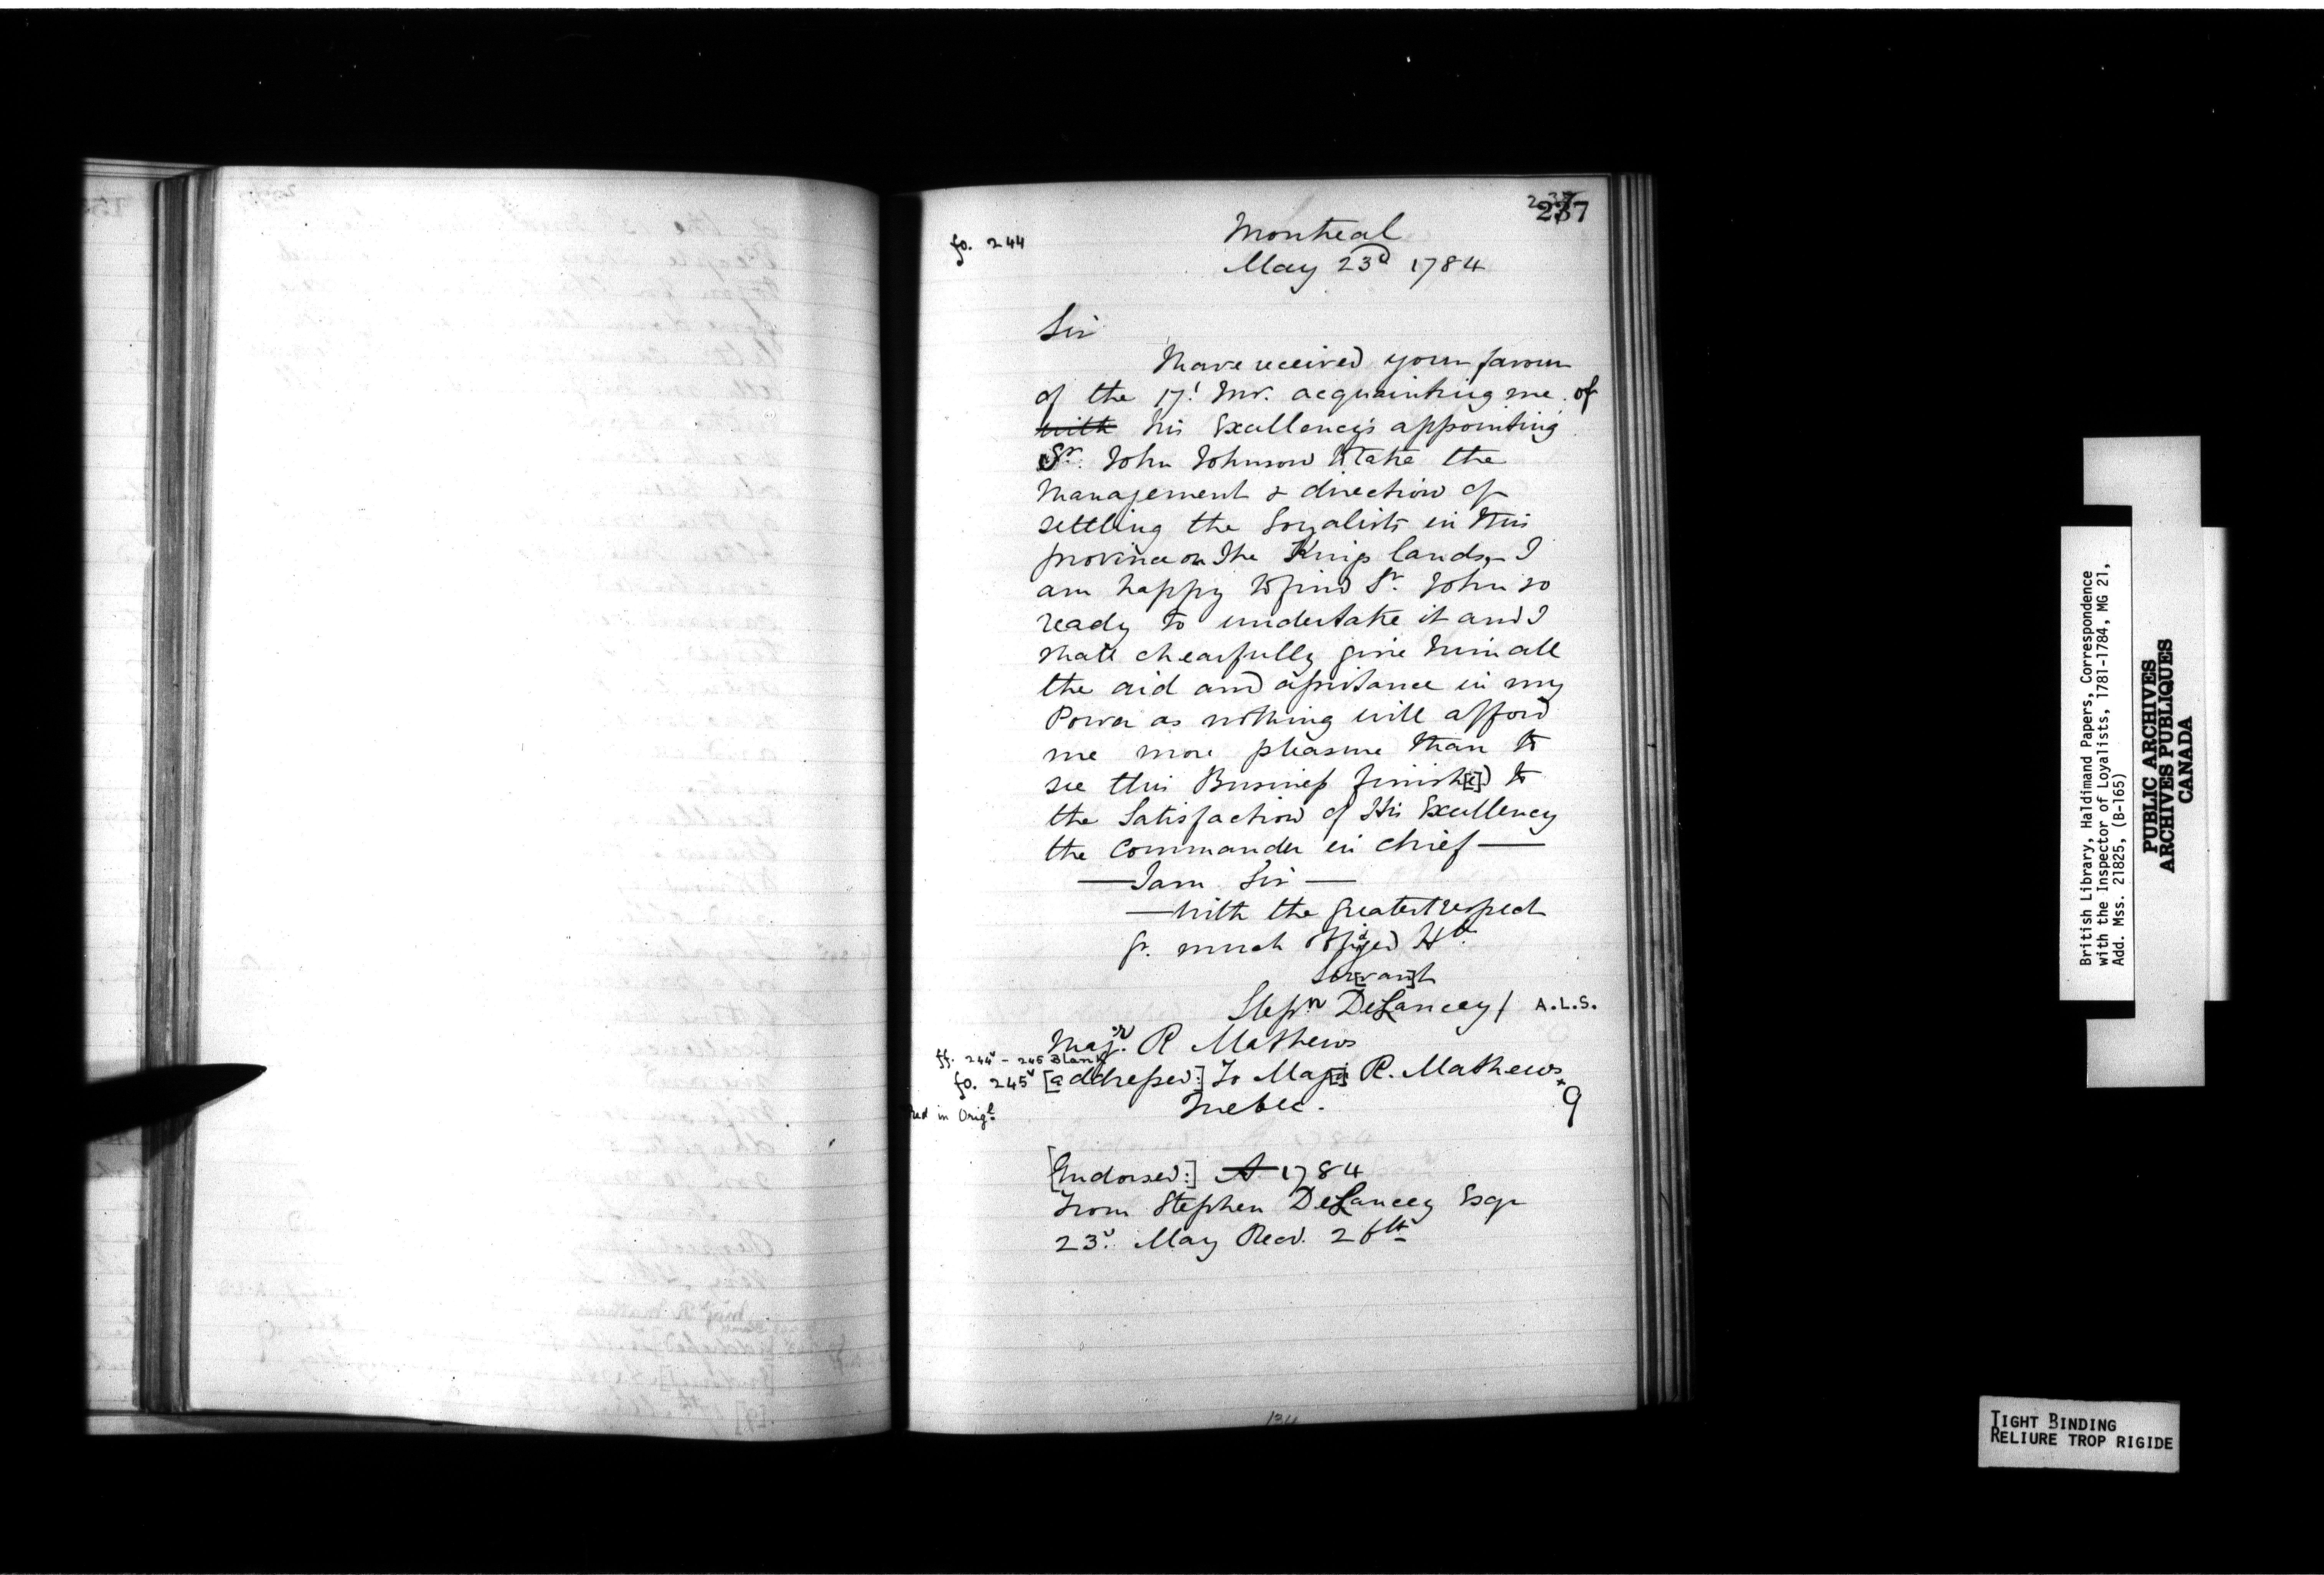 237
fo. 244
Montreal
May 23d 1784
Sir
I have received your favour
of the 17! Inst. acquainting me of
with his Excellency's appointing
Sr. John Johnson to take the
Management & direction of
settling the Loyalists in this
province on the Kings lands, I
am happy to find Sr. John so
ready to undertake it and I
shall chearfully give him all
the aid and assistance in my
Power as nothing will afford
me more pleasure than to
see this Business finish[e]d to
the Satisfaction of His Excellency
the Commander in Chief —
— I am Sir —
— With the greatest respect
Yr. much obliged Hle.
Ser[van]t
Stepn DeLancey / A.L.S.
Majr. R Mathews
ff. 244v - 245 Blank
fo. 245v [addressed:] To Major R. Mathews
Quebec. 9
in Origl.
[Endorsed:] A 1784
From Stephen DeLancey Esqr
23d. May Recd. 26th
British Library, Haldimand Papers, Correspondence
with the Inspector of Loyalists, 1781-1784, MG 21,
Add. Mss. 21825, (B-165)
PUBLIC ARCHIVES
ARCHIVES PUBLIQUES
CANADA
TIGHT BINDING
RELIURE TROP RIGIDE